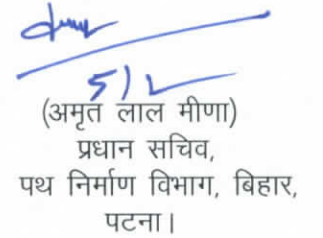 5/2
(अमृत लाल मीणा)
प्रधान सचिव,
पथ निर्माण विभाग, बिहार,
पटना।